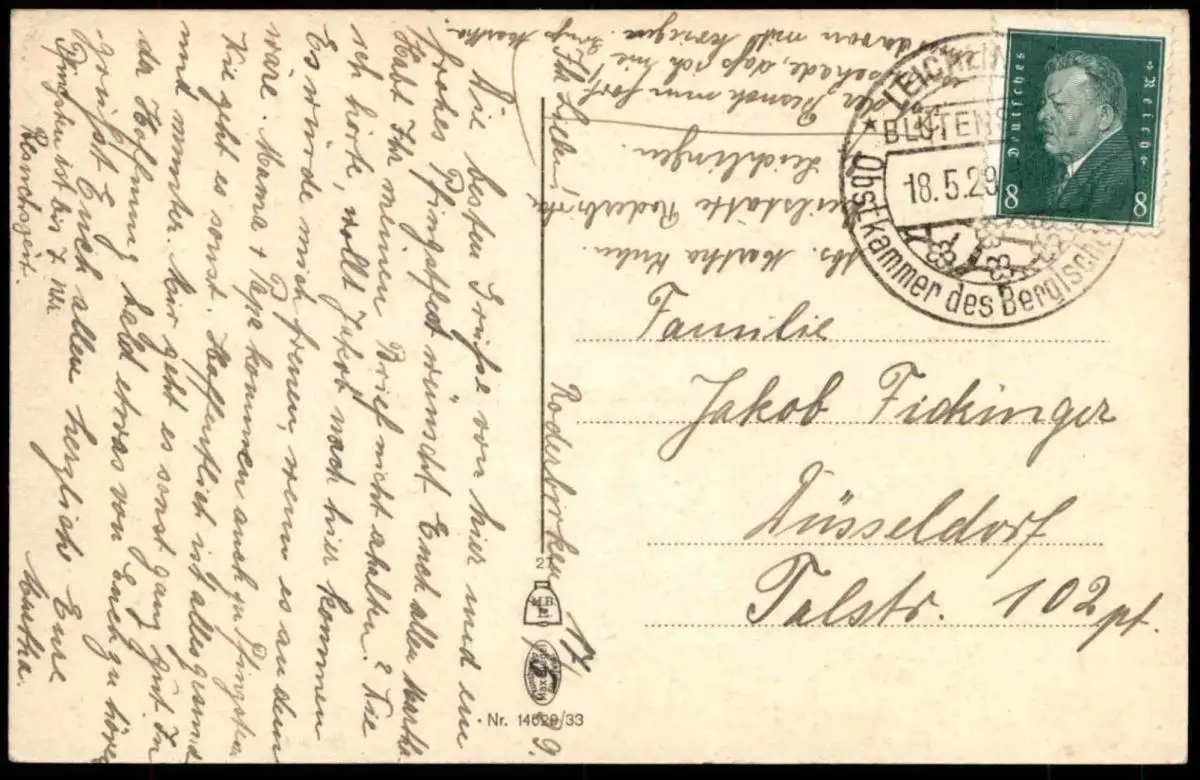 Roderbirken 17/5 29.
Ihr Lieben,
Die besten Grüße von hier und ein
frohes Pfingstfest wünscht Euch allen Martha.
Habt Ihr meinen Brief nicht erhalten? Wie
ich hörte, wollt Jakob nach hier kommen
Es würde mich freuen, wenn es an dem
wäre. Mama + Papa kommen auch zu Pfingsten
Wie geht es sonst. Hoffentlich ist alles gesund
und munter. Mir geht es sonst ganz gut. In
da Hoffnung bald etwas von Euch zu hören
grüßt Euch allen herzlich Eure
Martha.
Pfingsten ist bis 7 Uhr
Besuchszeit.
Besuch nun fort
schade, daß ich nie
davon mit kriegen. Martha.
Abs. Martha
Heilstätte Roderbirken
Leichlingen.
Familie
Jakob Fickinger
Düsseldorf
Talstr. 102 pt.
Deutsches Reich
8 8
LEICHLIN
BLÜTENS
18.5.29
Obstkammer des Bergische
27
M.B.
Nr. 14629/33